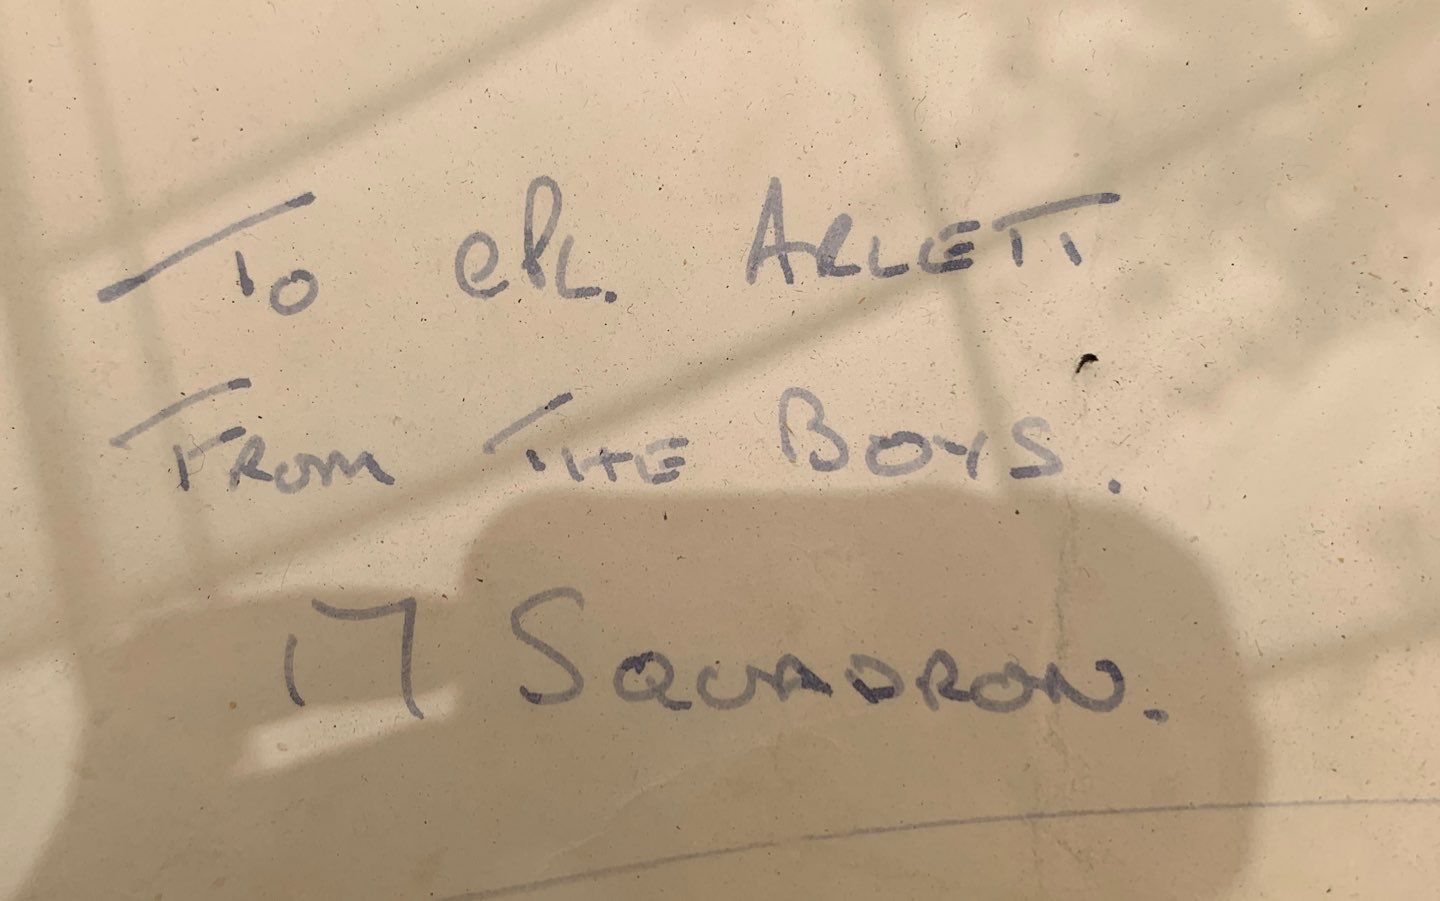 To CPL. ARLETT
FROM THE BOYS.
17 SQUADRON.